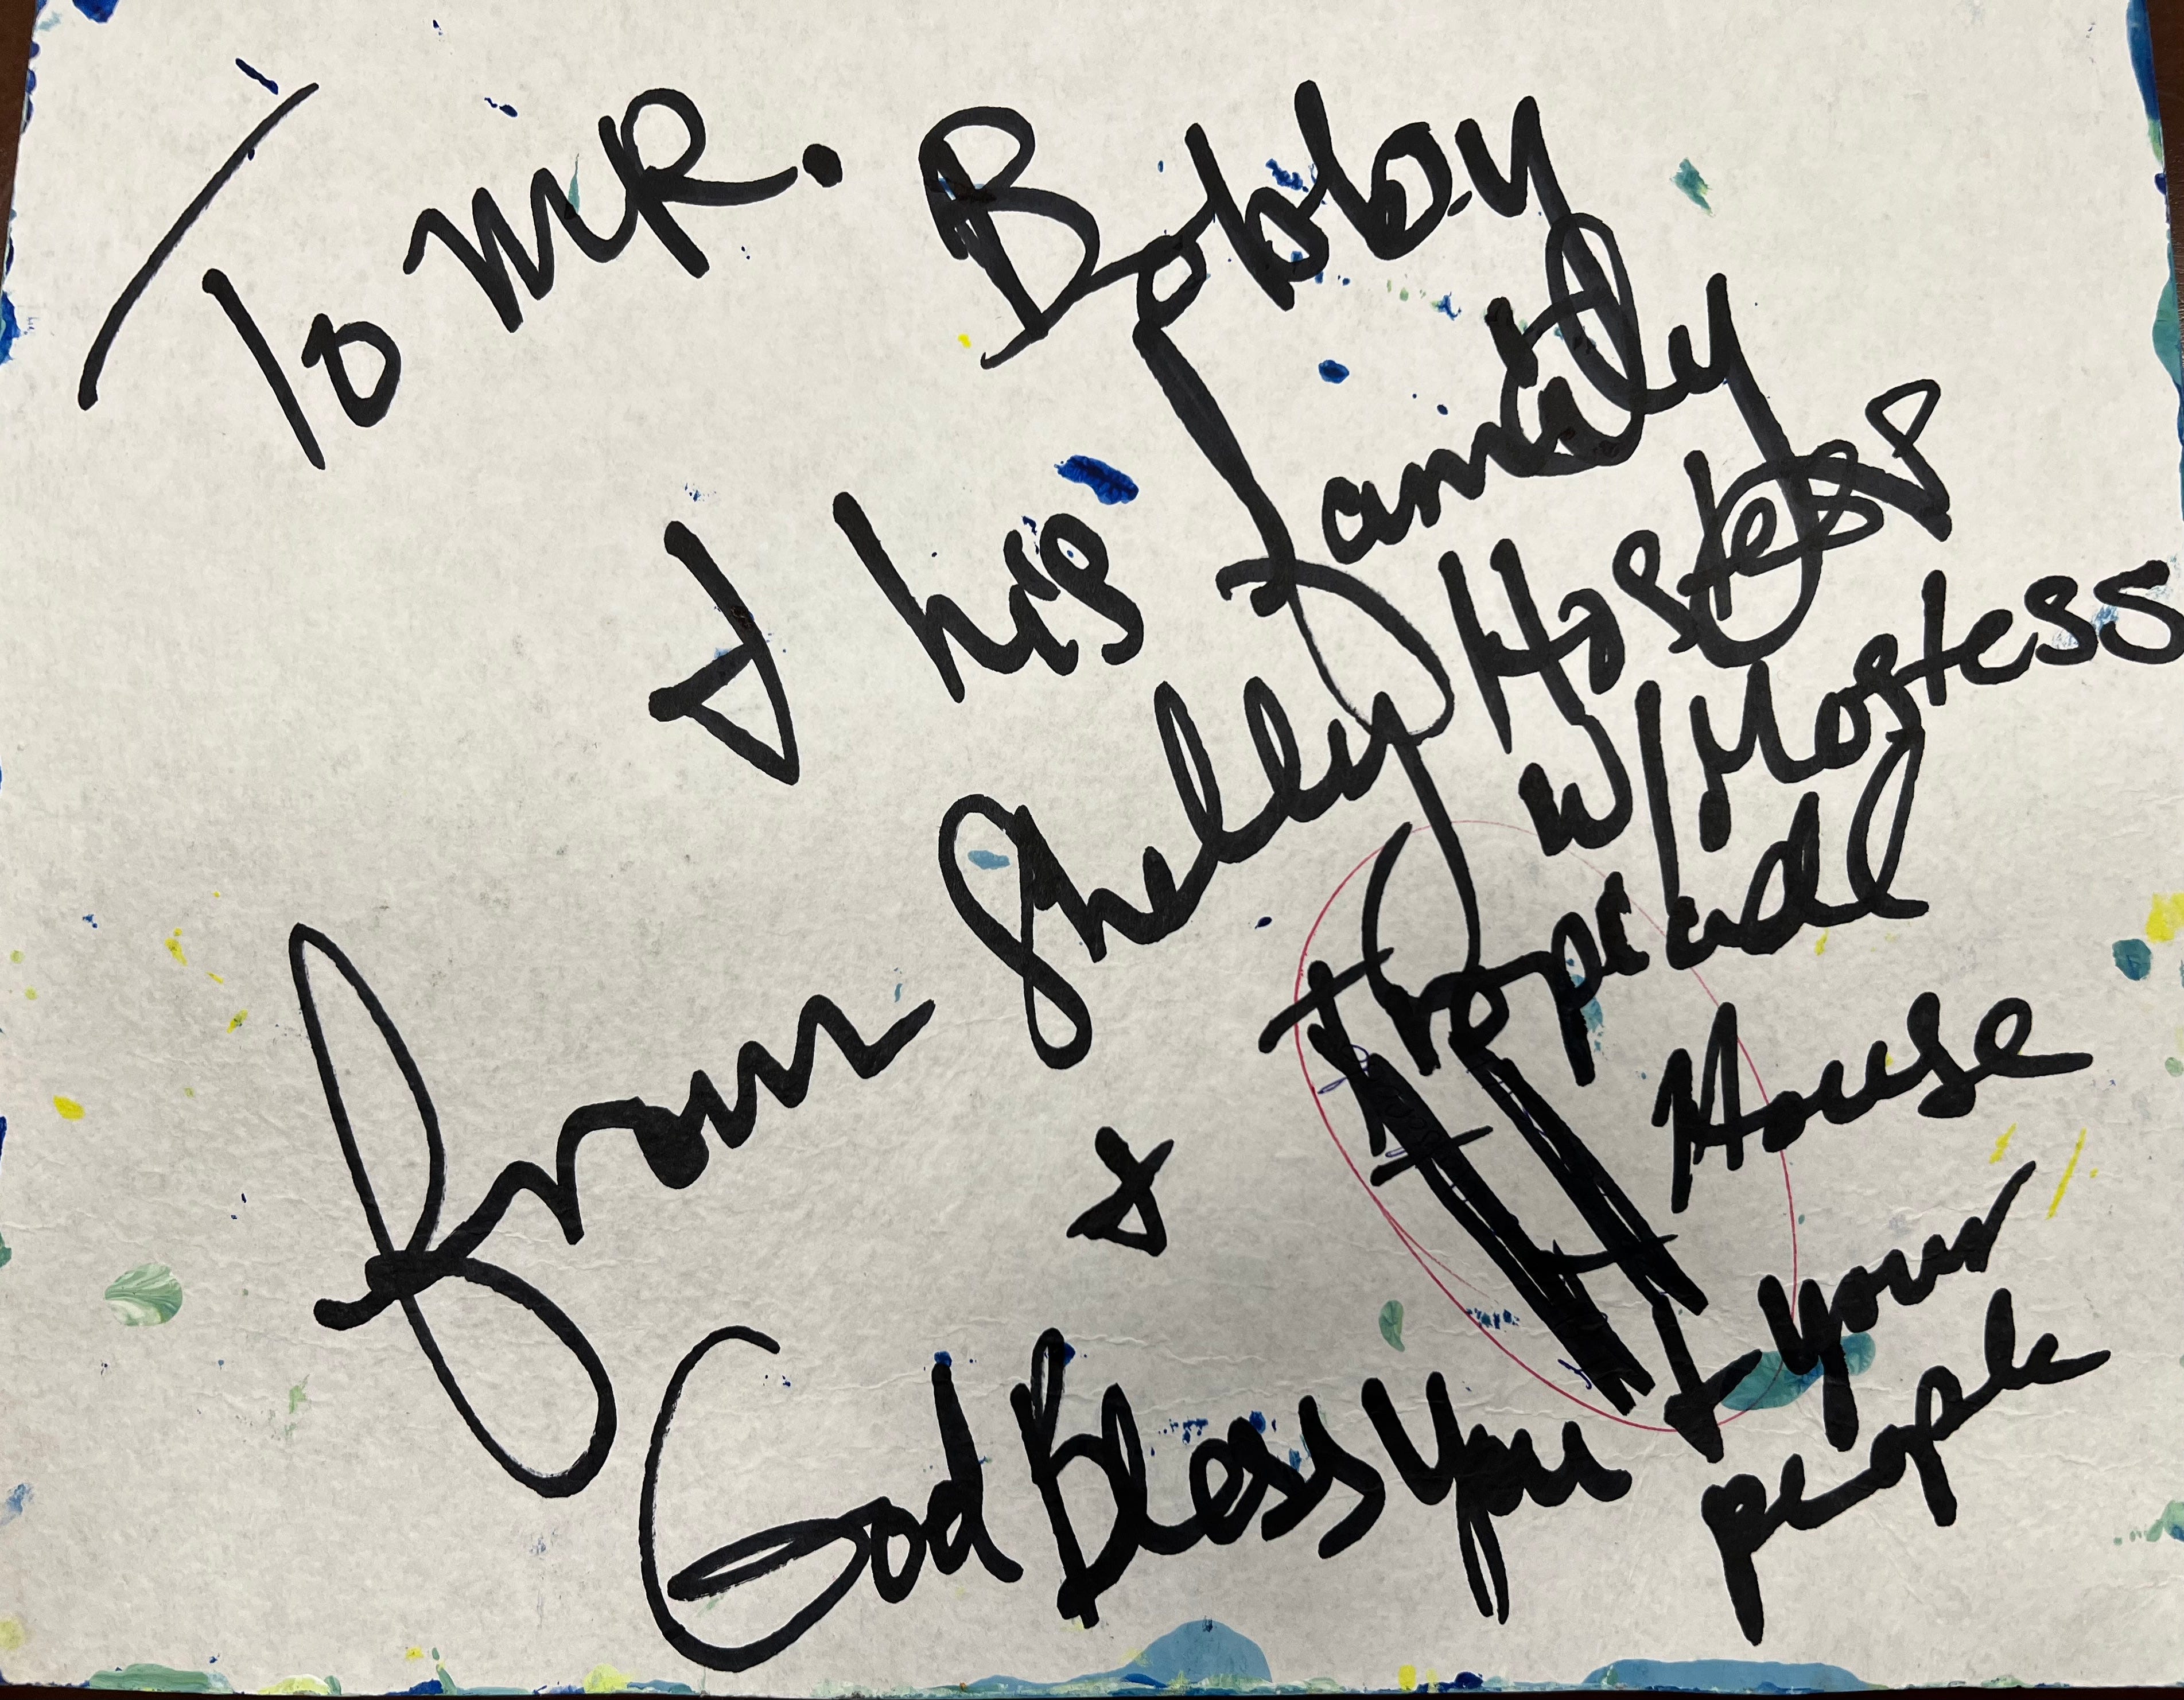 To MR. Bobby
& his family
from Shelly Hostess
w/Mostess
House
&
God Bless You & your
people